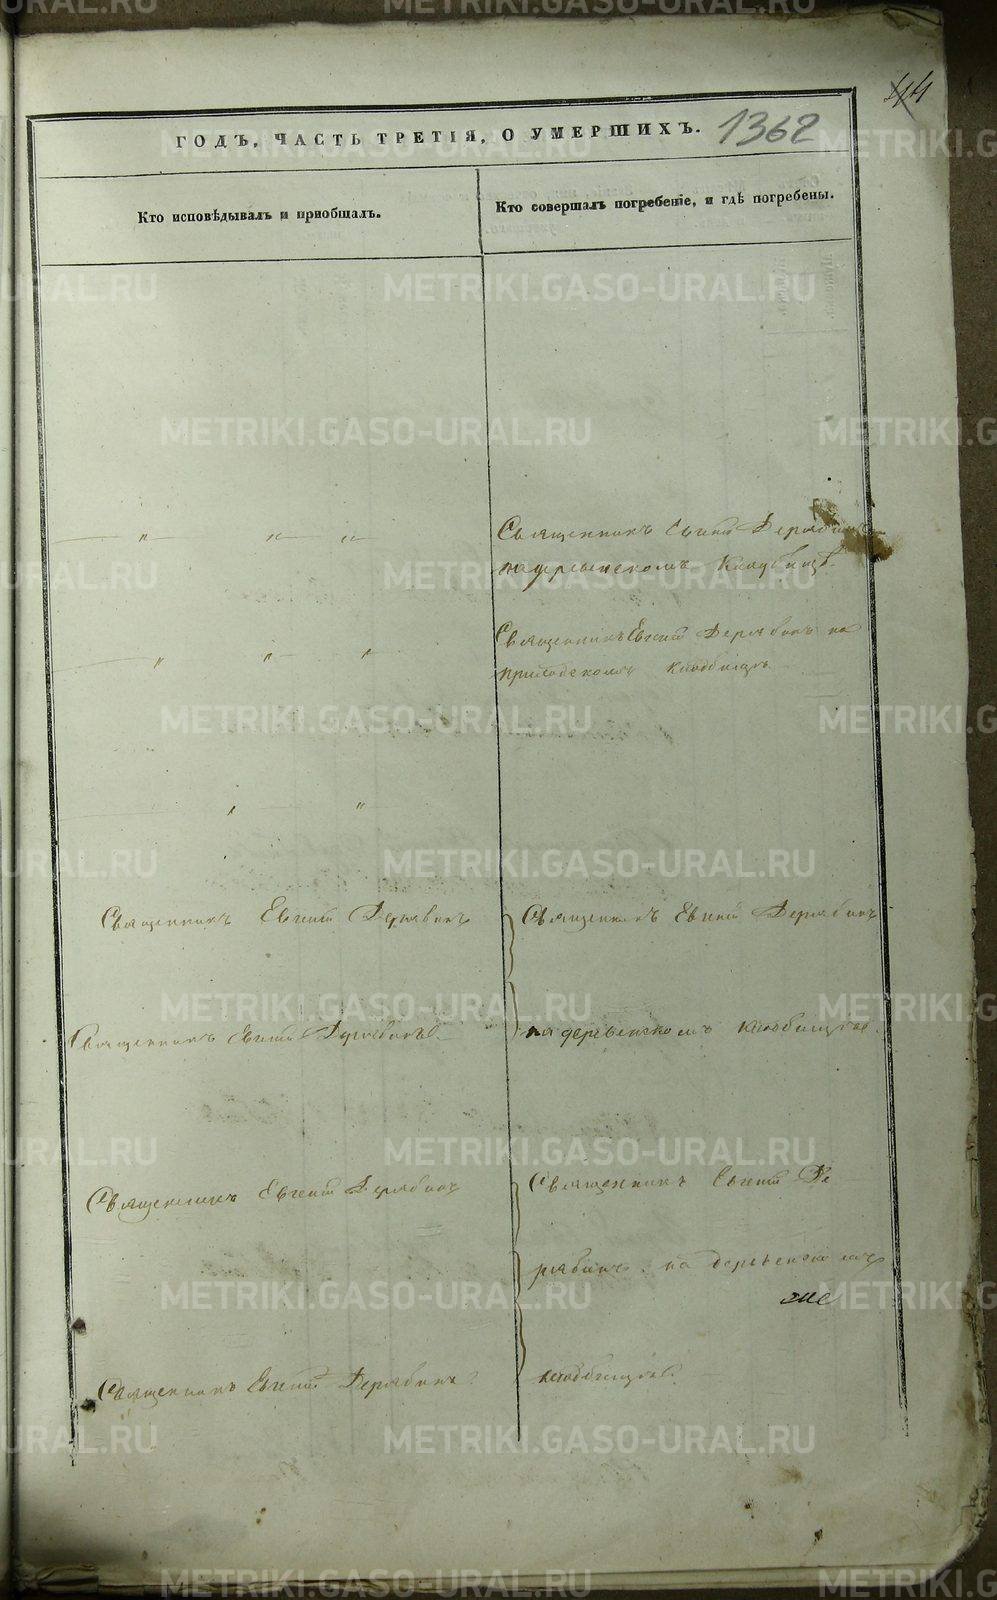 44
ГОДЪ, ЧАСТЬ ТРЕТІЯ, О УМЕРШИХЪ.
1362
Кто исповѣдывалъ и пріобщалъ.
Кто совершалъ погребеніе, и гдѣ погребены.
Священникъ Евгеній Дерябинъ
на деревенскомъ кладбищѣ.
Священникъ Евгеній Дерябинъ на
приходскомъ кладбищѣ
Священникъ Евгеній Дерябинъ
Священникъ Евгеній Дерябинъ
Священникъ Евгеній Дерябинъ
на деревенскомъ кладбищѣ.
Священникъ Евгеній Дерябинъ
Священникъ Евгеній Де
рябинъ на деревенскомъ
Священникъ Евгеній Дерябинъ
кладбищѣ.
METRIKI.GASO-URAL.RU